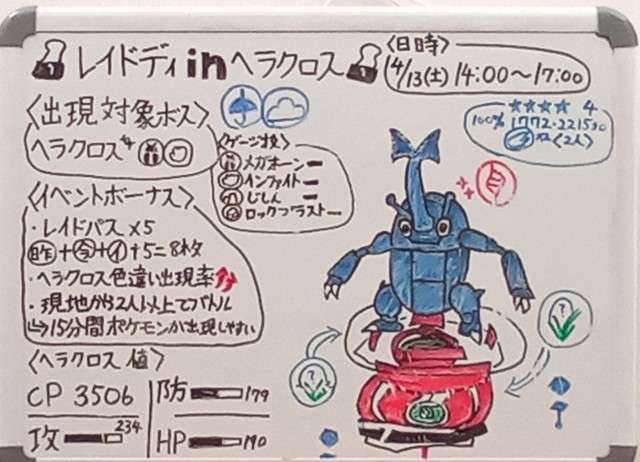 レイドディinヘラクロス
〈日時〉
4/13(土) 14:00〜17:00
〈出現対象ボス〉
ヘラクロス
〈ゲージ技〉
メガホーン
インファイト
じしん
ロックブラスト
★★★★ 4
100% 1772・2215
〈2人〉
〈イベントボーナス〉
・レイドパス×5
昨+今+イ+5=8枚
・ヘラクロス色違い出現率
・現地から2人以上でバトル
↳15分間ポケモンが出現しやすい
〈ヘラクロス値〉
CP 3506
防 179
攻 234
HP 190